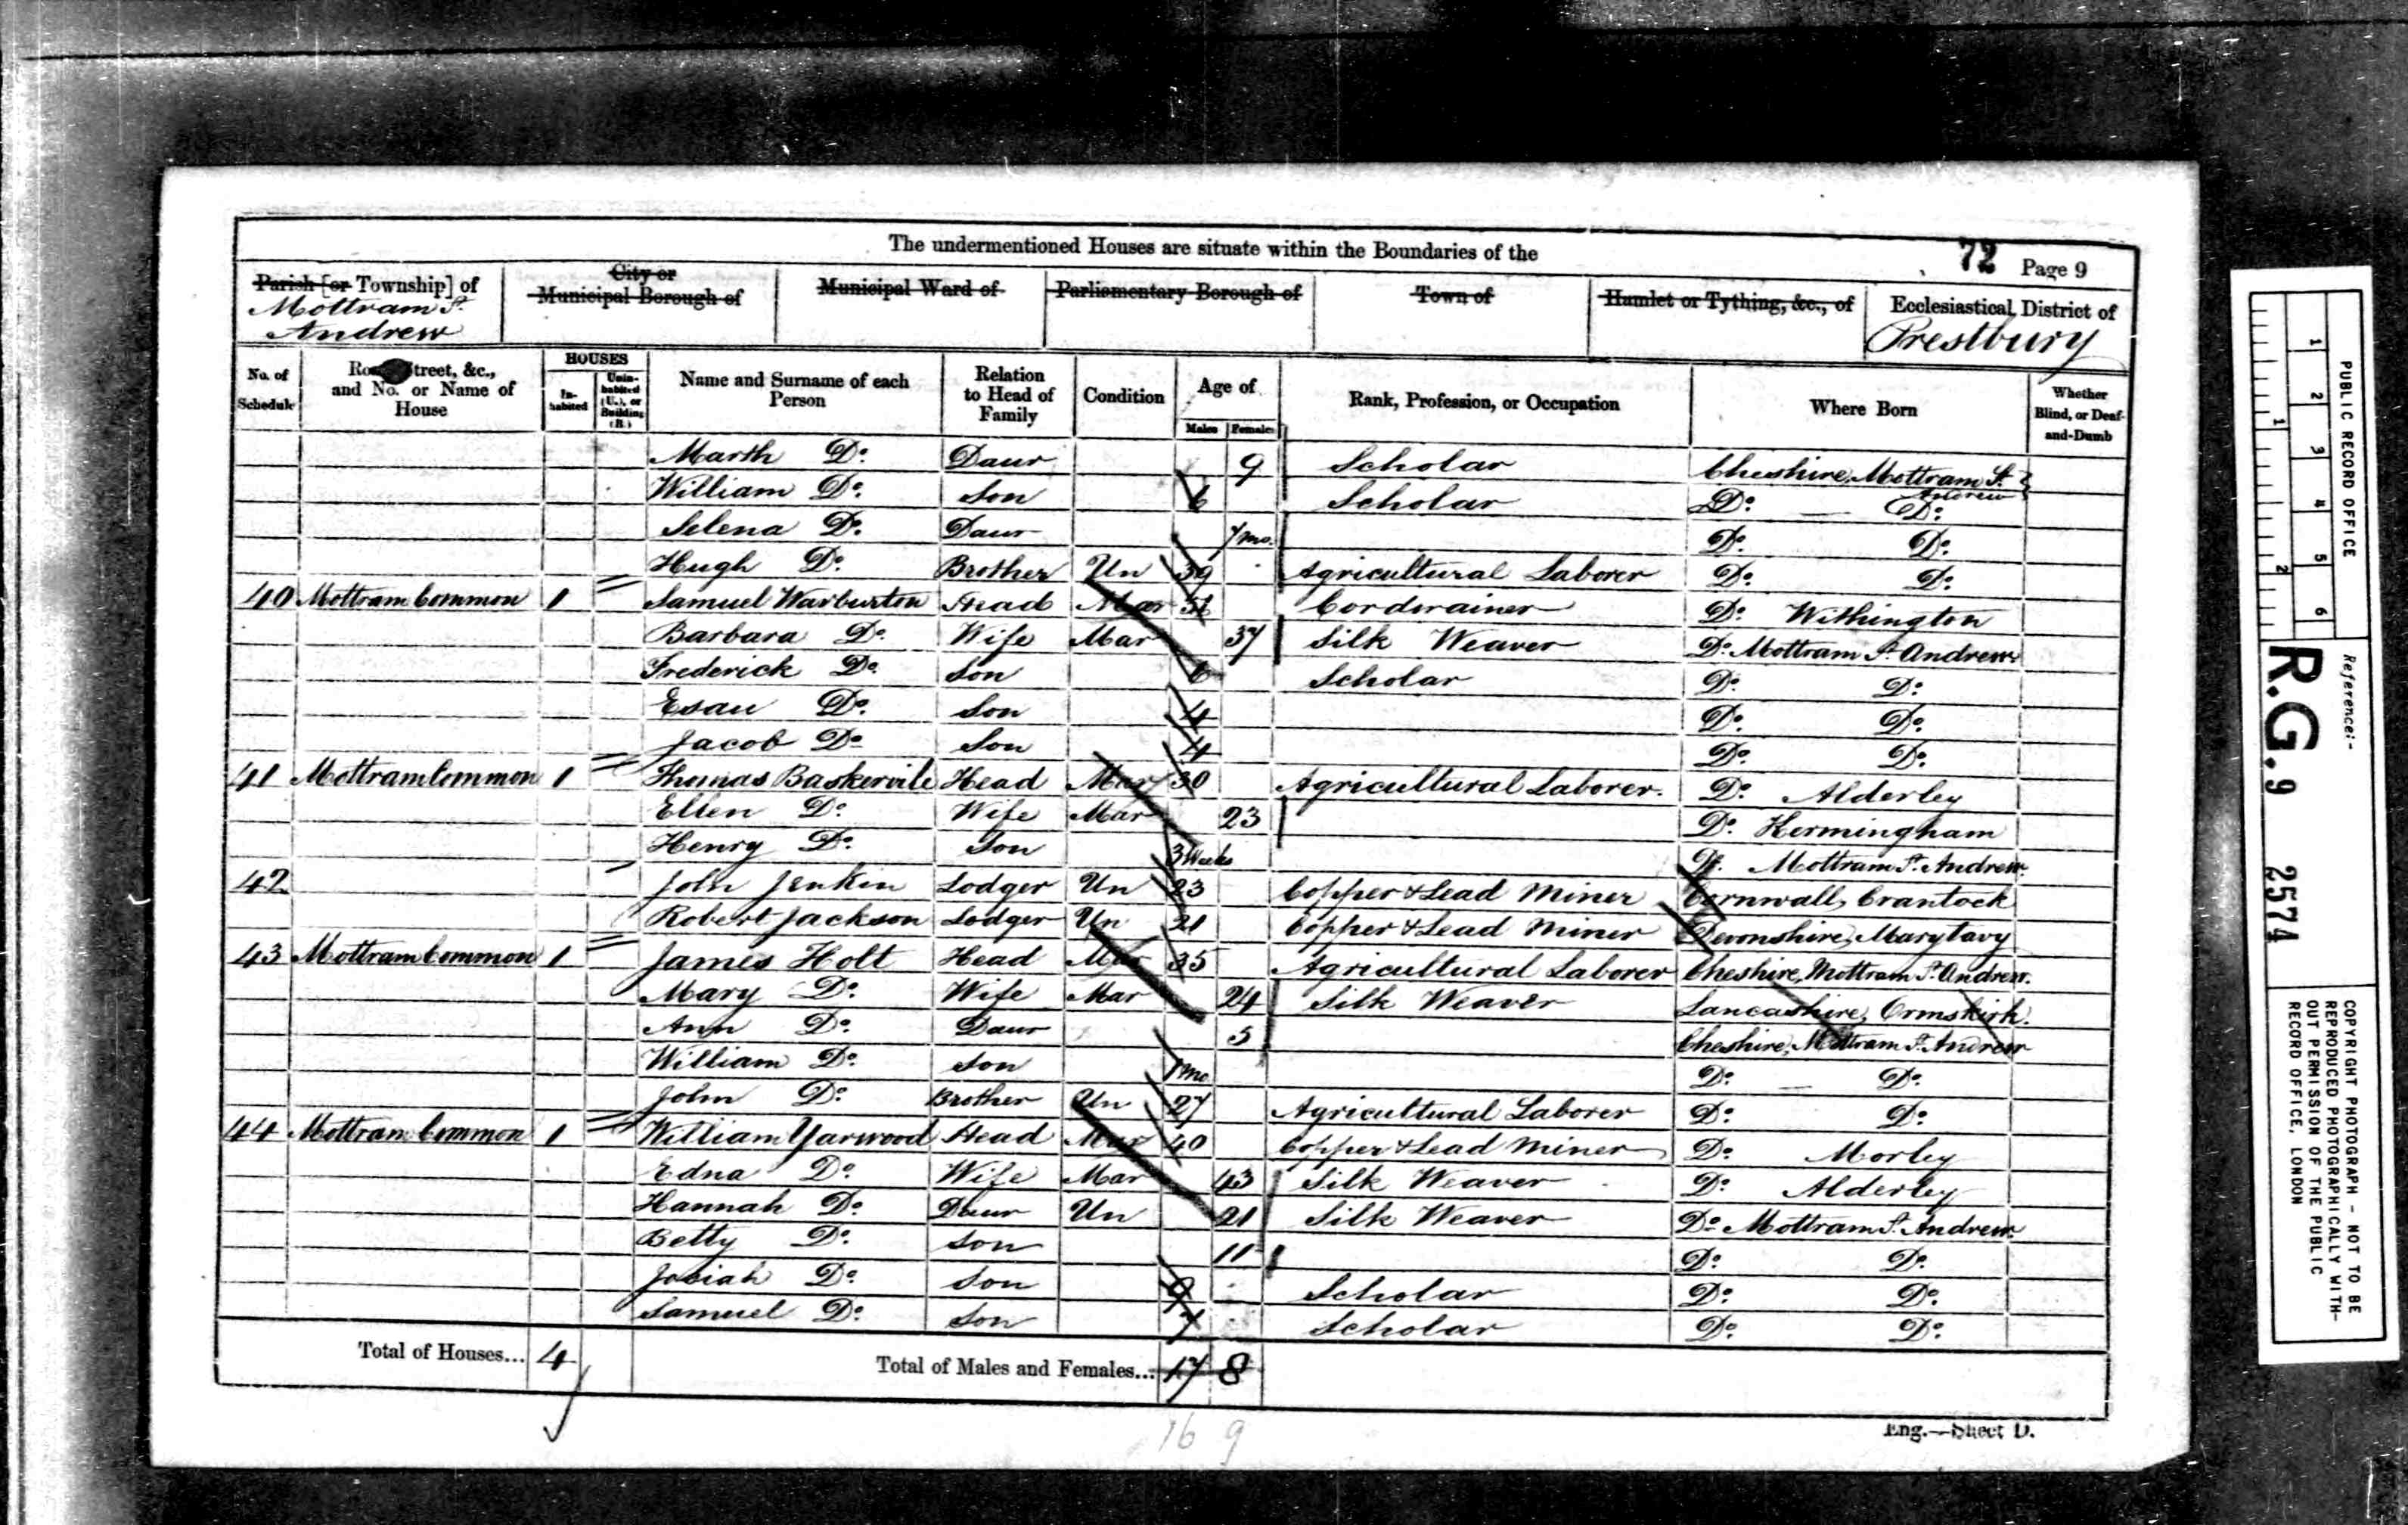 The undermentioned Houses are situate within the Boundaries of the
72 Page 9
Parish [or Township] of
Mottram St.
Andrew
City or
Municipal Borough of
Municipal Ward of
Parliamentary Borough of
Town of
Hamlet or Tything, &c., of
Ecclesiastical District of
Prestbury
No. of Schedule
Street, &c., and No. or Name of House
HOUSES
In-habited
Unin-habited (U.), or Building (B.)
Name and Surname of each Person
Relation to Head of Family
Condition
Age of
Males Females
Rank, Profession, or Occupation
Where Born
Whether Blind, or Deaf-and-Dumb
Marth Do. Daur 9 Scholar Cheshire, Mottram St. Andrew
William Do. Son 6 Scholar Do. Do.
Selena Do. Daur 7 mo. Do. Do.
Hugh Do. Brother Un 39 Agricultural Laborer Do. Do.
40 Mottram Common 1 Samuel Warburton Head Mar Cordwainer Do. Withington
Barbara Do. Wife Mar 37 Silk Weaver Do. Mottram St. Andrew
Frederick Do. Son 6 Scholar Do. Do.
Esau Do. Son 4 Do. Do.
Jacob Do. Son 4 Do. Do.
41 Mottram Common 1 Thomas Baskervile Head Mar 30 Agricultural Laborer. Do. Alderley
Ellen Do. Wife Mar 23 Do. Kermingham
Henry Do. Son 3 Weeks Do. Mottram St. Andrew
42 John Jenkin Lodger Un 23 Copper & Lead Miner Cornwall, Crantock
Robert Jackson Lodger Un 21 Copper & Lead Miner Devonshire, Marytavy
43 Mottram Common 1 James Holt Head Mar 35 Agricultural Laborer Cheshire, Mottram St. Andrew.
Mary Do. Wife Mar 24 Silk Weaver Lancashire, Ormskirk.
Ann Do. Daur 5 Cheshire, Mottram St. Andrew
William Do. Son 1 mo Do. Do.
John Do. Brother Un 27 Agricultural Laborer Do. Do.
44 Mottram Common 1 William Yarwood Head Mar 40 Copper & Lead Miner Do. Morley
Edna Do. Wife Mar 43 Silk Weaver Do. Alderley
Hannah Do. Daur Un 21 Silk Weaver Do. Mottram St. Andrew
Betty Do. Son 11 Do. Do.
Josiah Do. Son 9 Scholar Do. Do.
Samuel Do. Son 7 Scholar Do. Do.
Total of Houses... 4
Total of Males and Females... 17 8
16 9
Eng.—Sheet D.
PUBLIC RECORD OFFICE
1 2 3 4 5 6
1 2
Reference:-
R.G. 9 2574
COPYRIGHT PHOTOGRAPH - NOT TO BE
REPRODUCED PHOTOGRAPHICALLY WITH-
OUT PERMISSION OF THE PUBLIC
RECORD OFFICE, LONDON